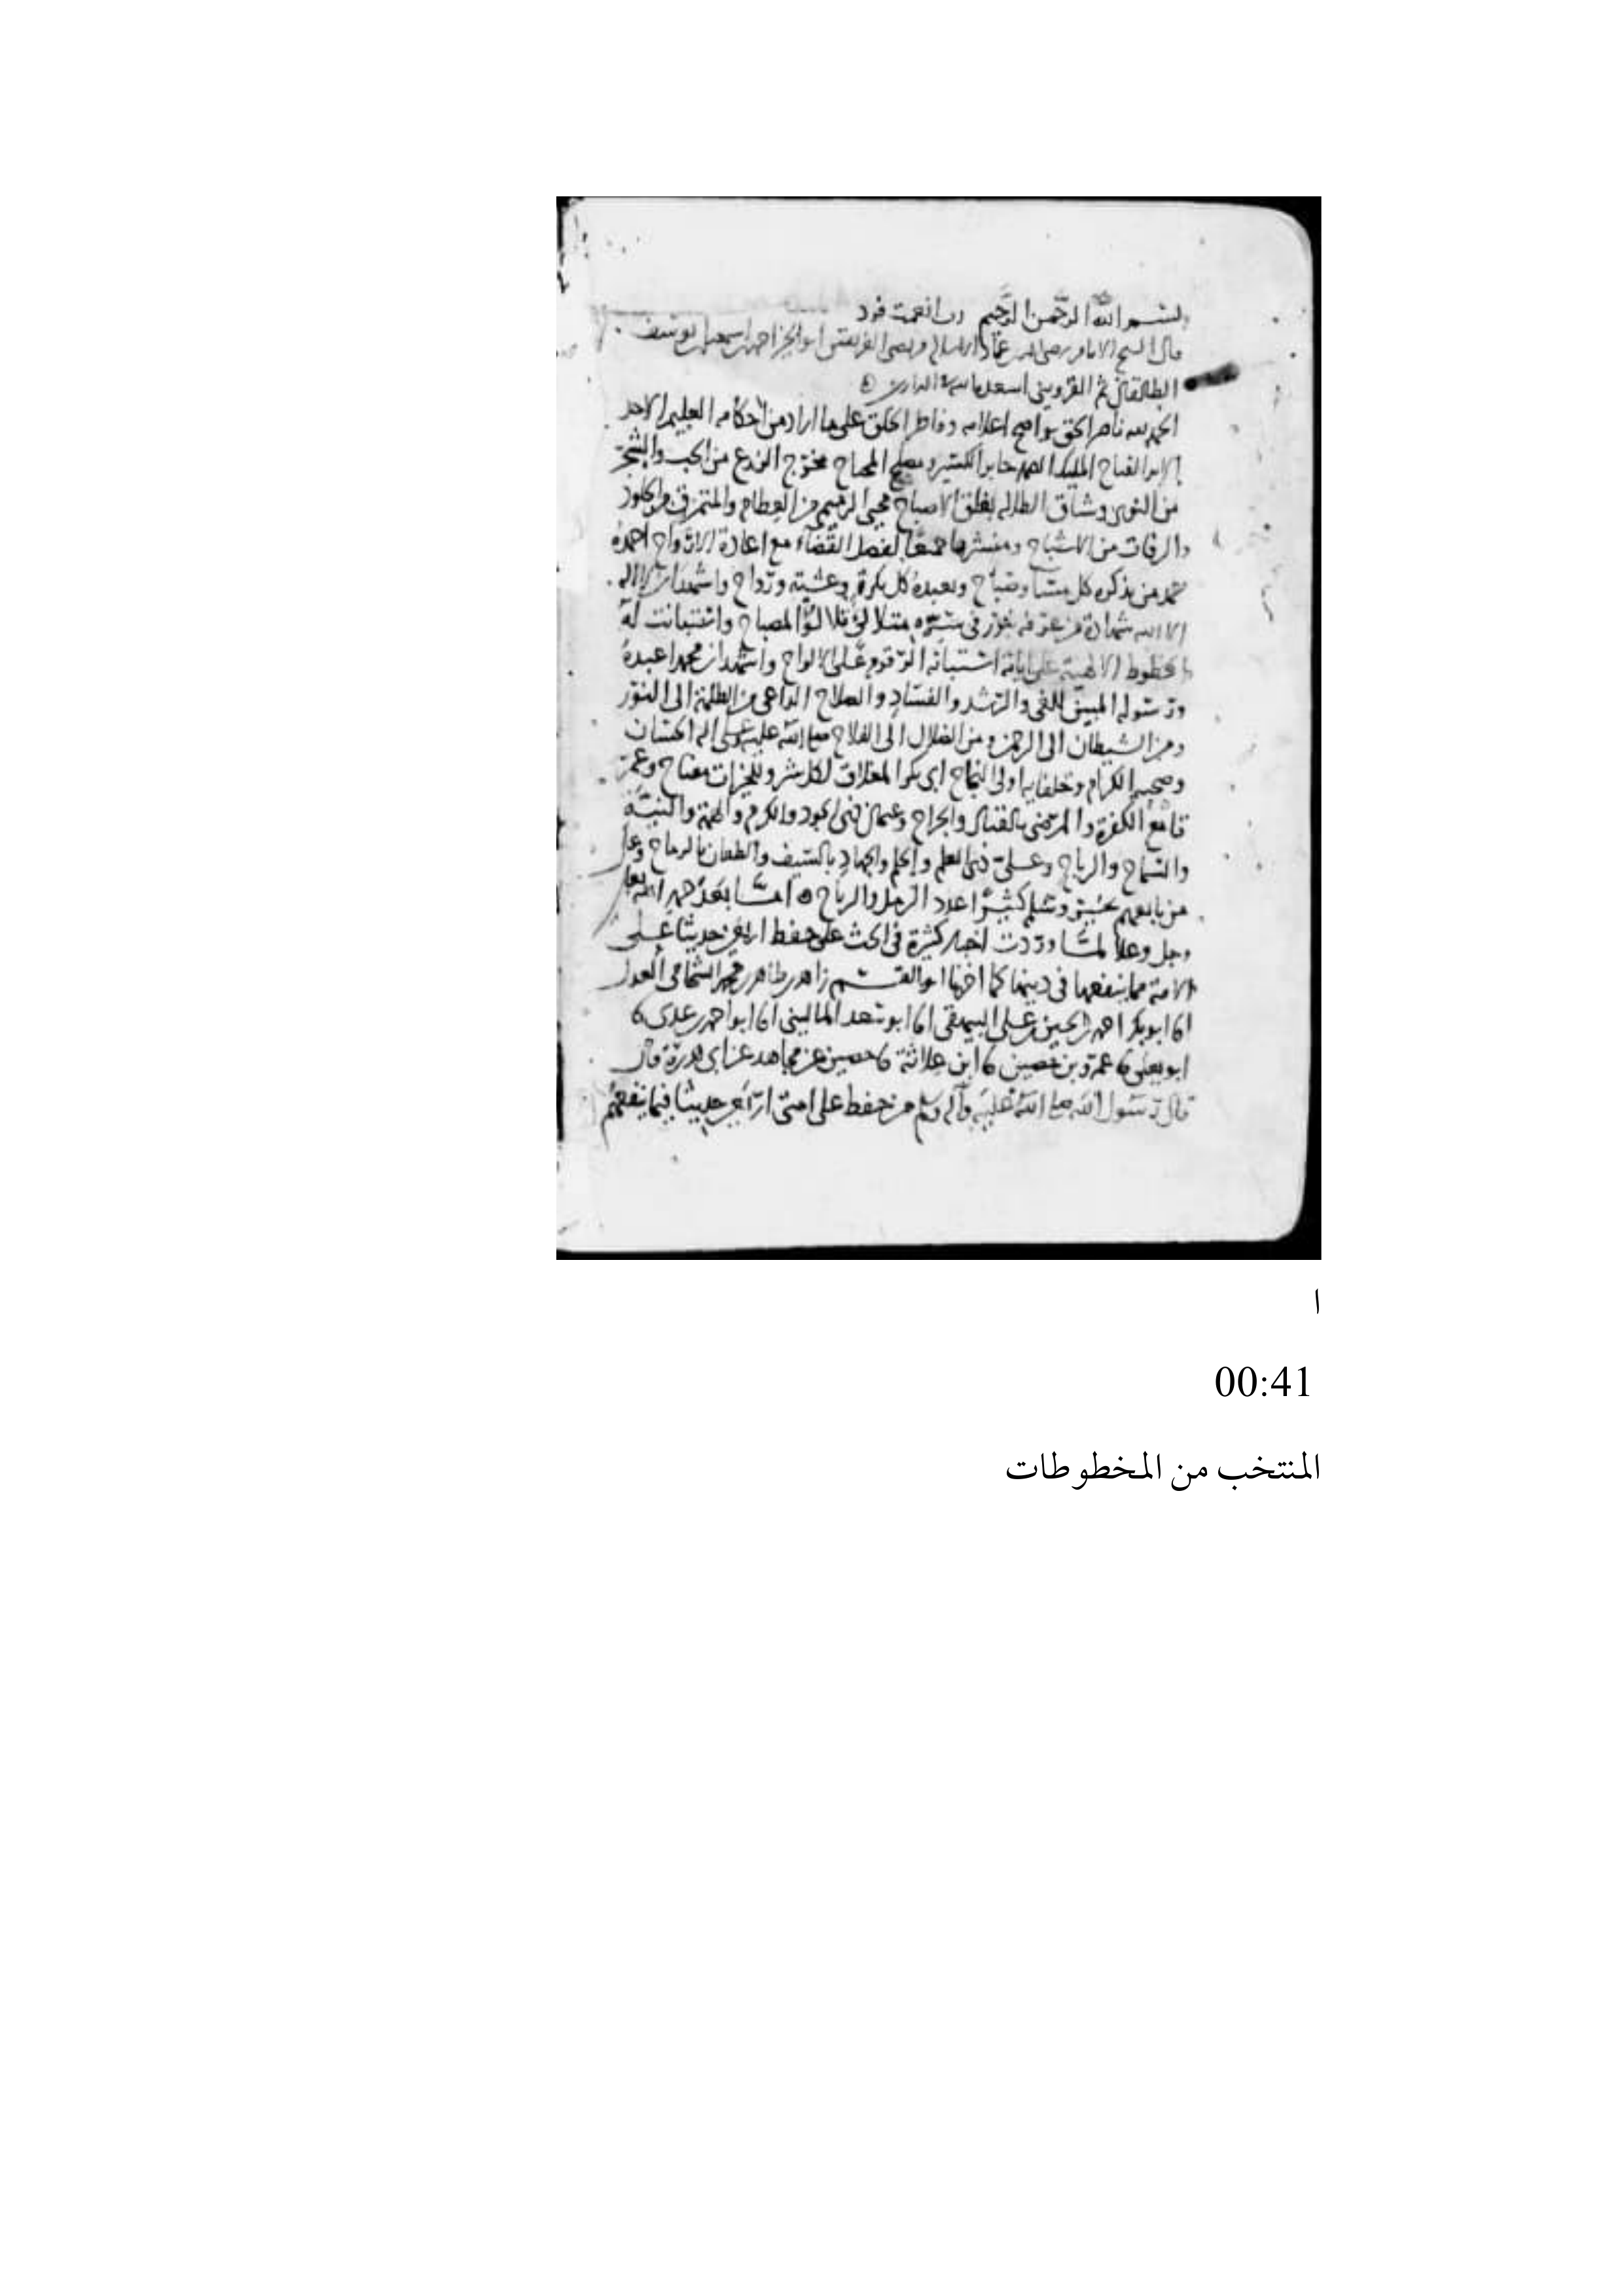 بسم الله الرحمن الرحيم رب انعمت فزد
قال الشيخ الامام رضي الدين عماد الاسلام مفتي الفريقين ابو الخير احمد بن اسمعيل بن يوسف
الطالقاني ثم القزويني اسعده الله في الدارين
الحمد لله ناصر الحق بواضح اعلامه وفاطر الخلق على ما اراد من احكامه العليم الاحد
الفتاح المليك الصمد جابر الكسير مخرج الزرع من الحب والشجر
من النوى وشاق الظلام بفلق الاصباح محيي الرميم من العظام والمتمزق من الجلود
والرفات من الاشباح ومنشرها جمعا لفصل القضاء مع اعادة الارواح احمده
حمد من يذكره كل مساء وصباح ويعبده كل بكرة وعشية ورواح واشهد ان لا اله
الا الله شهادة من عرفه بنور في سره متلالئ تلالؤ المصباح واستبانت له
الخطوط الالهية على اياته استبانة الرقوم على الالواح واشهد ان محمدا عبده
ورسوله المبين للغي والرشد والفساد والصلاح الداعي من الظلمة الى النور
ومن الشيطان الى الرحمن ومن الضلال الى الفلاح صلى الله عليه وعلى اله الحسان
وصحبه الكرام وخلفايه اولي النجاح ابي بكر المغلاق لكل شر وللخيرات مفتاح وعمر
قامع الكفرة بالقتال والجراح وعثمان ذي الجود والكرم والهمة
والسماح والرباح وعلي ذي العلم والحلم والجهاد بالسيف والطعان بالرماح وعلى
من تابعهم وسلم كثيرا عدد الرمل والرياح اما بعد حمد الله
وجل وعلا لما وردت اخبار كثيرة في الحث على حفظ اربعين حديثا على
الامة مما ينفعها في دينها كما اخبرنا ابو القسم زاهر بن طاهر بن محمد الشحامي العدل
انا ابو بكر احمد بن الحسين بن علي البيهقي انا ابو سعد الماليني انا ابو احمد بن عدي نا
ابو يعلى نا عمرو بن حصين نا ابن علاثة نا خصيف عن مجاهد عن ابي هريرة قال
قال رسول الله صلى الله عليه وآله وسلم من حفظ على امتي اربعين حديثا فيما ينفعهم
ا
00:41
المنتخب من المخطوطات